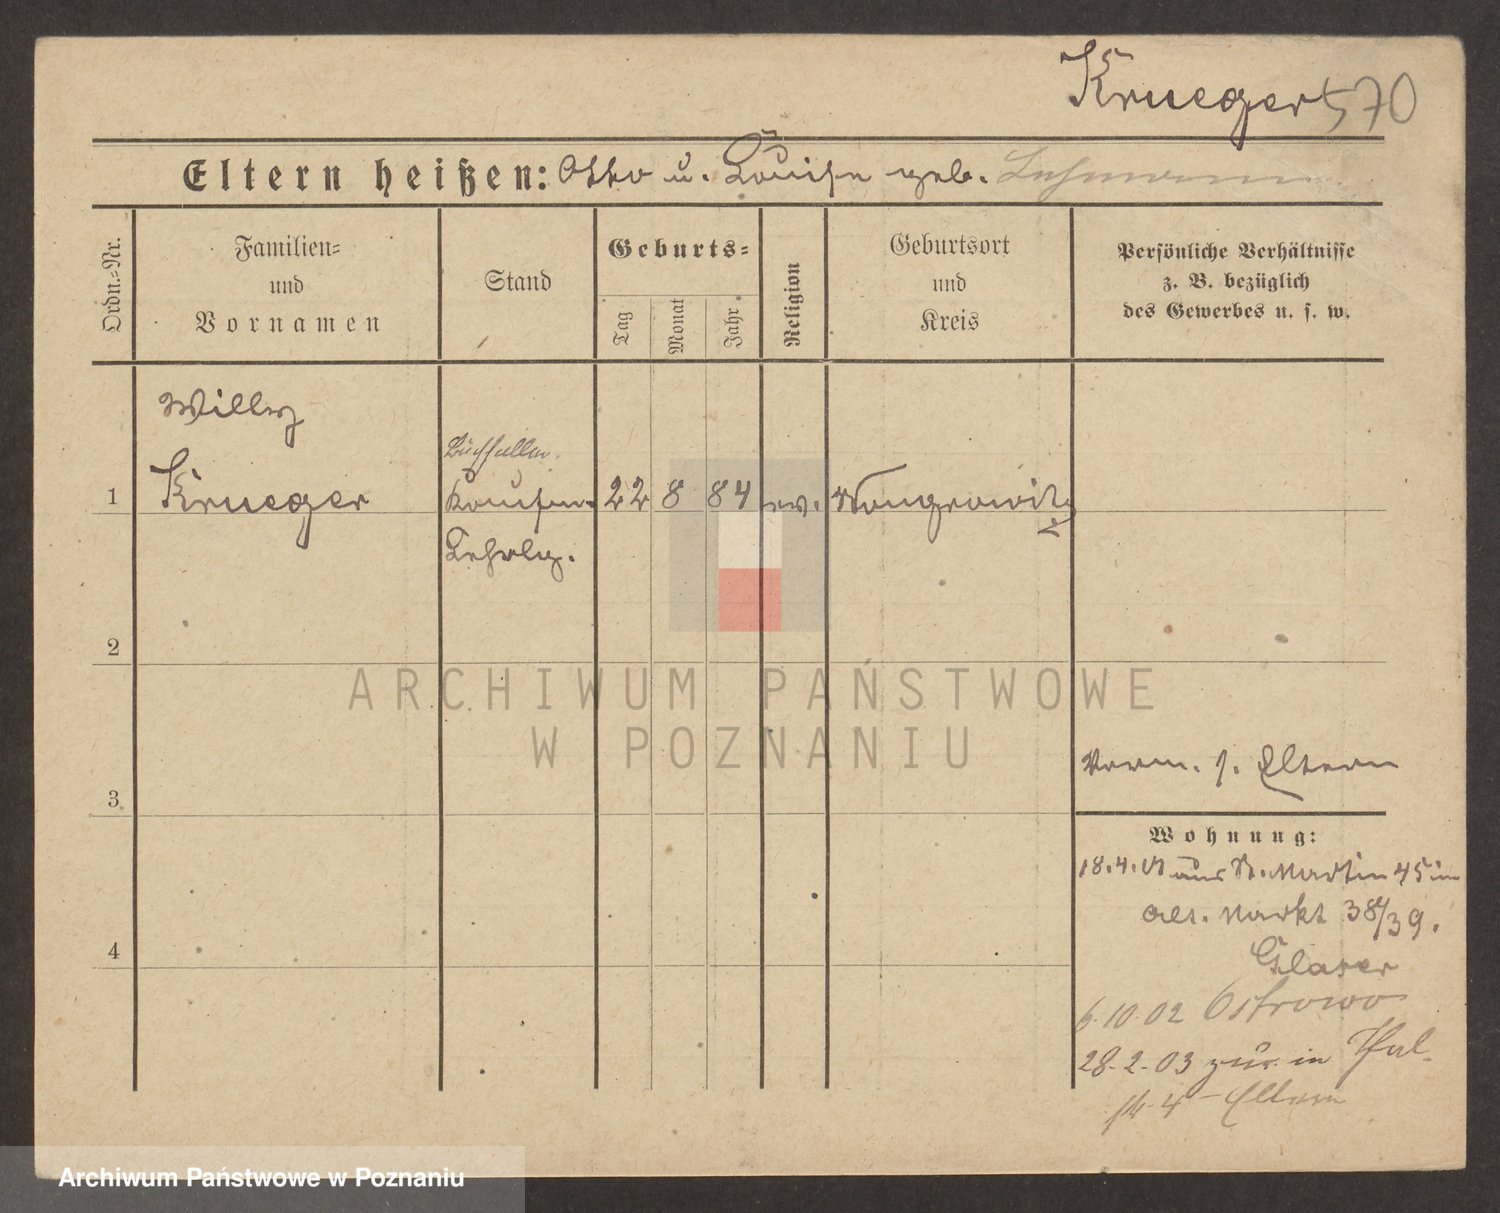 Krueger 570
Eltern heißen: Otto u. Louise geb. Lehmann
Ordn.=Nr.
Familien=
und
Vornamen
Stand
Geburts=
Tag
Monat
Jahr
Religion
Geburtsort
und
Kreis
Persönliche Verhältnisse
z. B. bezüglich
des Gewerbes u. s. w.
Willy
1 Krueger
Kaufm. 22 8 84 ev. Wongrowitz
Lehrlg.
2
ARCHIWUM PAŃSTWOWE
W POZNANIU
Verm. s. Eltern
3
Wohnung:
18.4.01 aus St. Martin 45 in
Alt. Markt 38/39.
4
Glaser
6.10.02 Ostrowo
28.2.03 zur. in
4 - Eltern
Archiwum Państwowe w Poznaniu